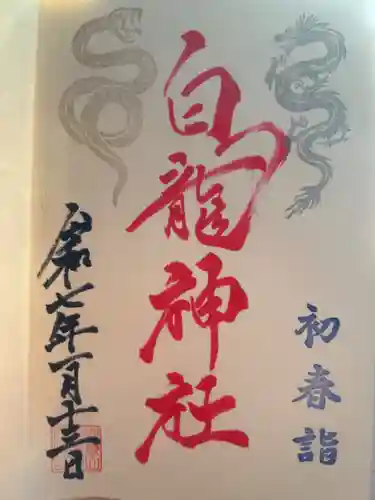 初春詣
白龍神社
令和七年一月十三日